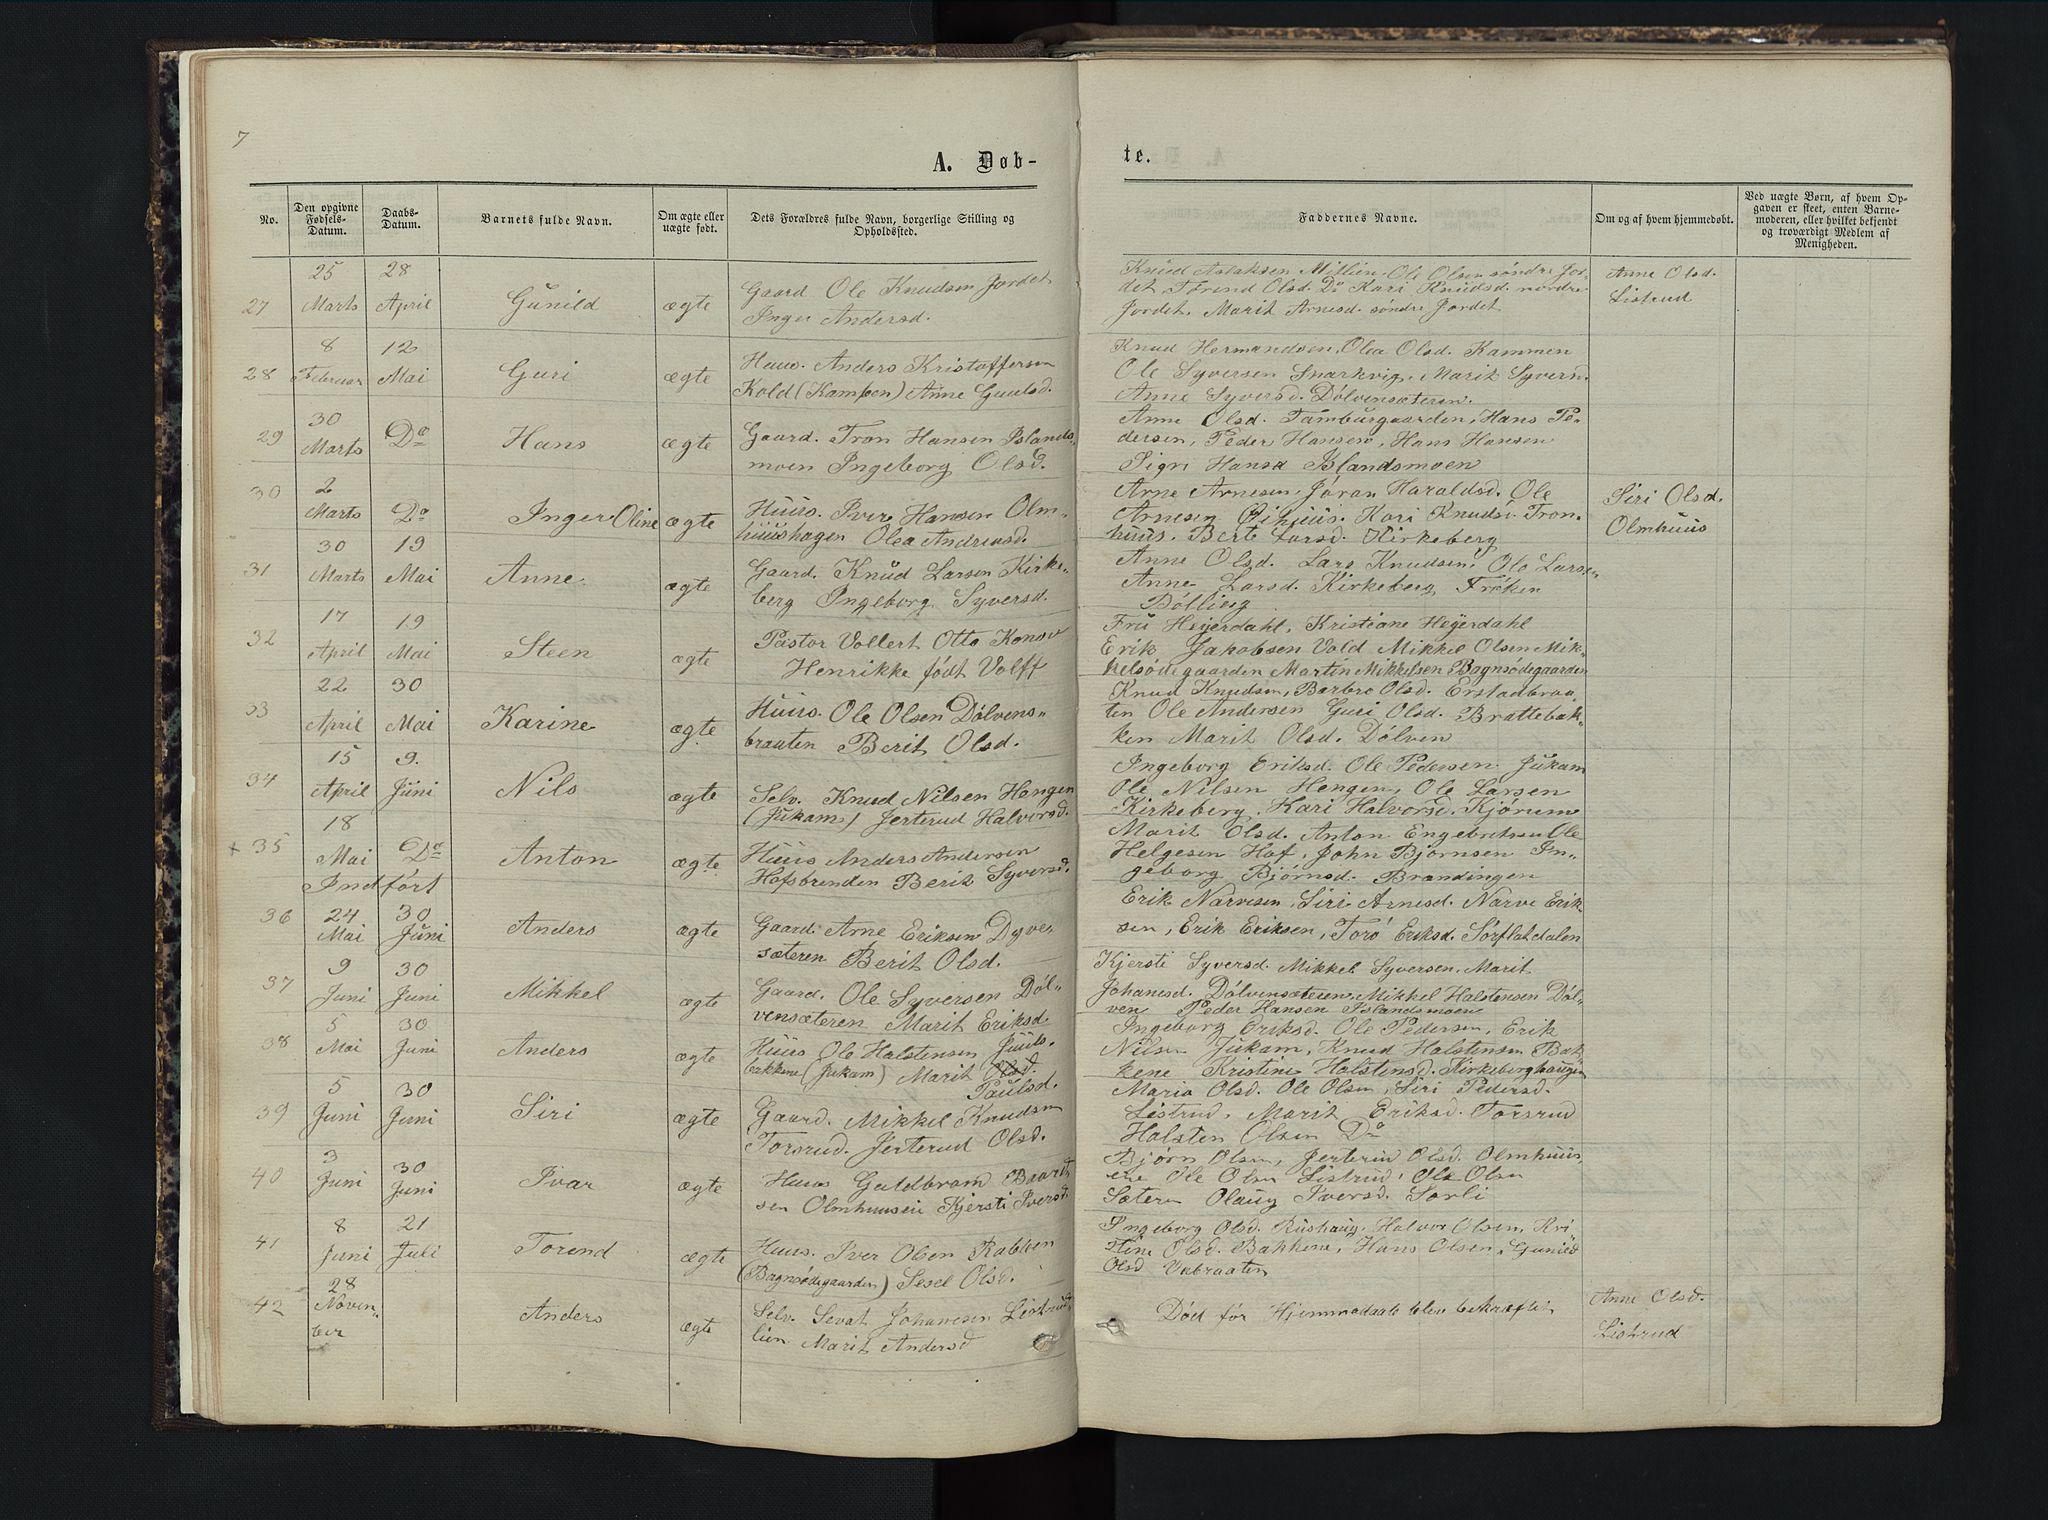 7
A. Døb-
te.
No.
Den opgivne Fødsels-Datum.
Daabs-Datum.
Barnets fulde Navn.
Om ægte eller uægte født.
Dets Forældres fulde Navn, borgerlige Stilling og Opholdssted.
Faddernes Navne.
Om og af hvem hjemmedøbt.
Ved uægte Børn, af hvem Opgaven er skeet, enten Barnemoderen, eller hvilket bekjendt og troværdigt Medlem af Menigheden.
27
25 Marts
28 April
Gunild
ægte
Gaard. Ole Knudsen Jordet
Inger Andersd.
Knud Aslaksen Ole Olsen søndre Jor-
det Torend Olsd. Do Kari Knudsd. nordre
Jordet. Marit Arnesd. søndre Jordet
Anne Olsd.
Listrud
28
8 Februar
12 Mai
Guri
ægte
Huus. Anders Kristoffersen
Kold (Kampen) Anne Guulsd.
Knud Hermandsen, Olea Olsd. Kammen
Ole Syversen Snarkvig, Marit Syvern.
Anne Syversd. Dölvensæteren.
29
30 Marts
Do
Hans
ægte
Gaard. Tron Hansen Islands-
moen Ingeborg Olsd.
Anne Olsd. Tamburgaarden, Hans Pe-
dersen, Peder Hansen, Hans Hansen
Sigri Hansd Islandsmoen
30
2 Marts
Do
Inger Oline
ægte
Huus. Iver Hansen Olm-
huushagen Olea Andreasd.
Arne Arnesen, Jöran Haraldsd. Ole
Arnesen Kari Knudsd. Tron-
huus. Berte Larsd. Kirkeberg
Siri Olsd.
Olmhuus
31
30 Marts
19 Mai
Anne
ægte
Gaard. Knud Larsen Kirke-
berg Ingeborg Syversd.
Anne Olsd. Lars Knudsen, Ole Larsen
Anne Larsd. Kirkeberg, Fröken
Bölling
32
17 April
19 Mai
Steen
ægte
Pastor Vollert Otto Konow
Henrikke født Volff
Fru Heyerdahl, Kristiane Heyerdahl
Erik Jakobsen Vold Mikkel Olsen Mik-
kelsödegaarden Martin Mikkelsen Bagnsödegaarden
33
22 April
30 Mai
Karine
ægte
Huus. Ole Olsen Dölvens-
braaten Berit Olsd.
Knud Knudsen, Barbro Olsd. Erstadbraa
ten Ole Andersen Guri Olsd. Brattebak-
ken Marit Olsd. Dölven
34
15 April
9. Juni
Nils
ægte
Selv. Knud Nilsen Hengen
(Jukam) Jerterud Halvorsd.
Ingeborg Eriksd. Ole Pedersen Jukam
Ole Nilsen Hengen, Ole Larsen
Kirkeberg, Kari Halvorsd. Kjörum
+ 35
18 Mai
Do
Indført
Anton
ægte
Huus Anders Andersen
Hofsbrenden Berit Syversd.
Marit Olsd. Anton Engebretsen Ole
Helgesen Hof, John Bjørnsen In-
geborg Bjørnsd. Brandingen
36
24 Mai
30 Juni
Anders
ægte
Gaard. Arne Eriksen Dyver
sæteren Berit Olsd.
Erik Narvesen, Siri Arnesd. Narve Erik
sen, Erik Eriksen, Torö Eriksd. Sörflatdalen
37
9 Juni
30 Juni
Mikkel
ægte
Gaard. Ole Syversen Döl-
vensæteren Marit Eriksd.
Kjersti Syversd. Mikkel Syversen, Marit
Johanesd. Dölvensæteren, Mikkel Halstensen Döl-
ven Peder Hansen Islandsmoen
38
5 Mai
30 Juni
Anders
ægte
Huus Ole Halstensen Juuls-
bakkene (Jukam) Marit Olsd.
Paulsd.
Ingeborg Eriksd. Ole Pedersen, Erik
Nilsen Jukam, Knud Halstensen Bak
kene Kristine Halstensd. Kirkeberghaugen
39
5 Juni
30 Juni
Siri
ægte
Gaard. Mikkel Knudsen
Torsrud. Jerterud Olsd.
Maria Olsd. Ole Olsen, Siri Pedersd.
Listrud, Marit Eriksd. Torsrud
Halsten Olsen Do
40
3 Juni
30 Juni
Ivar
ægte
Huus Guldbrand Baard
sen Olmhuusen Kjersti Iversd.
Björn Olsen, Jerterud Olsd. Olmhuus,
Ole Olsen Listrud, Ole Olsen
Sæteren Olaug Iversd. Sorli
41
8 Juni
21 Juli
Torend
ægte
Huus. Iver Olsen Bakken
(Bagnsödegaarden) Sesel Olsd.
Ingeborg Olsd. Rushaug, Halvor Olsen, Kri
stine Olsd. Bakkene, Hans Olsen, Gunild
Olsd
42
28 Novem-
ber
Anders
ægte
Selv. Sevat Johanesen Listrud
lien Marit Andersd
Död før Hjemmedaab blev bekræftet.
Anne Olsd.
Listrud